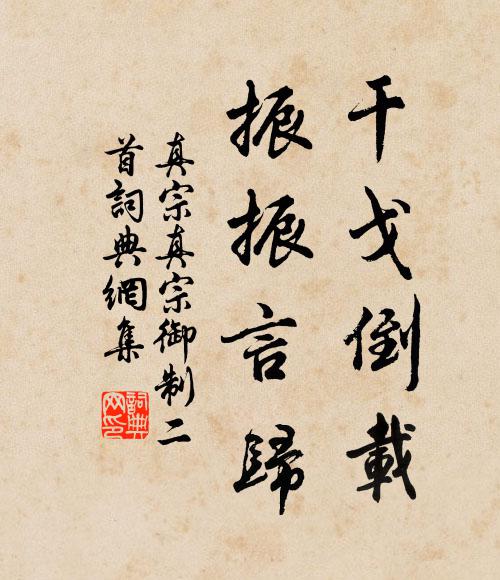 干戈倒載
振振言歸
真宗真宗御制二
首詞典網集
詞典网印